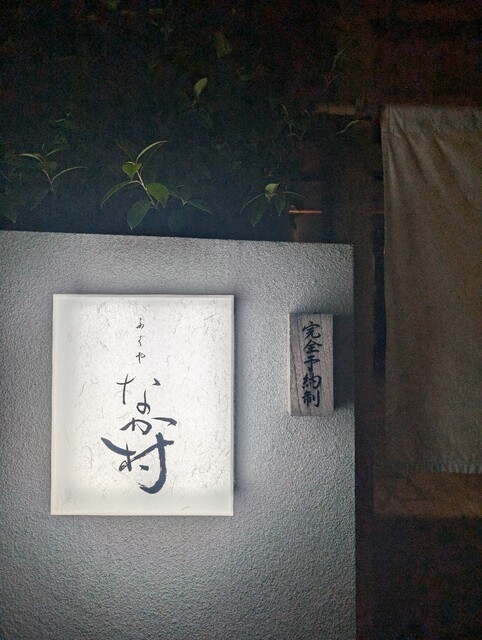 ふぐや
なか村
完全予約制